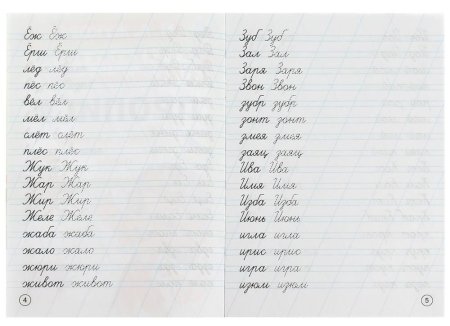 Ёж Ёж
Ёрш Ёрш
лёд лёд
пёс пёс
вёл вёл
мёл мёл
слёт слёт
плёс плёс
Жук Жук
Жар Жар
Жир Жир
Желе Желе
жаба жаба
жало жало
жюри жюри
живот живот
4
Зуб Зуб
Зал Зал
Заря Заря
Звон Звон
зубр зубр
зонт зонт
змея змея
заяц заяц
Ива Ива
Имя Имя
Изба Изба
Июнь Июнь
игла игла
ирис ирис
игра игра
изюм изюм
5